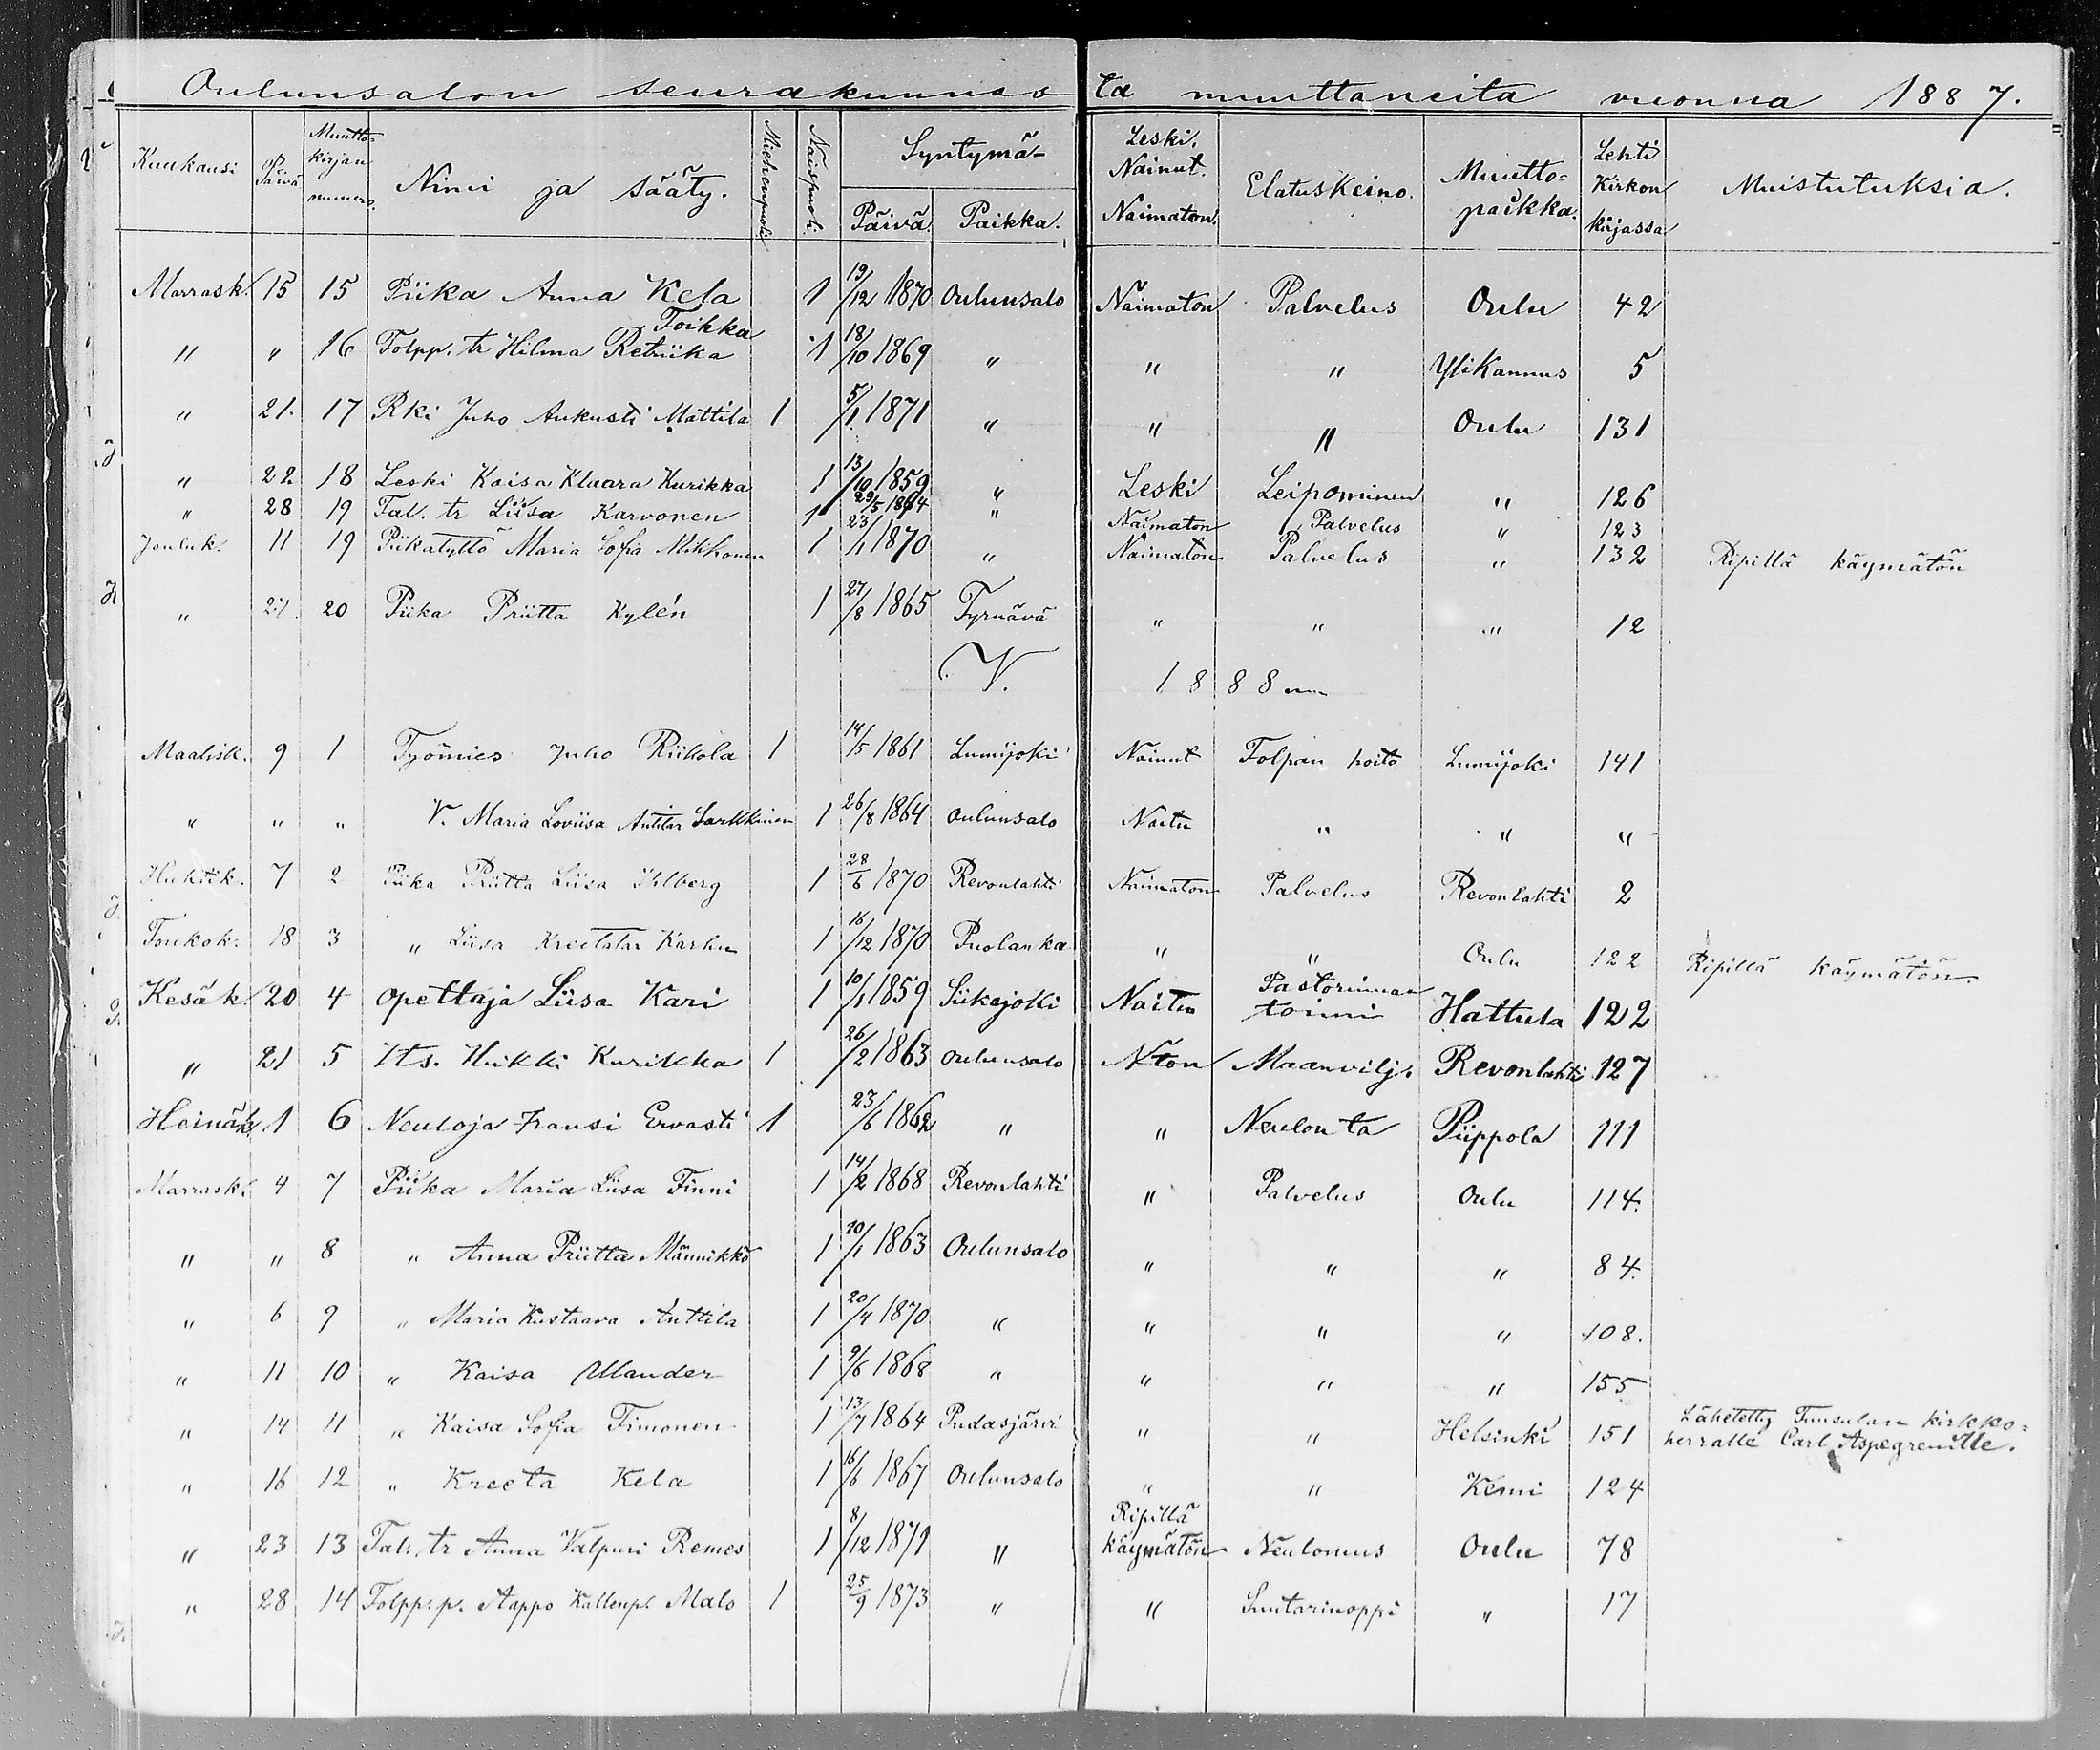 Oulunsalon seurakunnasta muuttaneita vuonna 1887.
Kuukausi Päivä Muutto-kirjan numero. Nimi ja sääty. Miehenpuoli Naispuoli Syntymä- Päivä. Paikka. Leski. Nainut. Naimaton. Elatuskeino. Muutto-paikka. Lehti Kirkon kirjassa Muistutuksia.
Marrask. 15 15 Piika Anna Kela 1 19/12 1870 Oulunsalo Naimaton Palvelus Oulu 42
Toikka
" " 16 Tolpp. tr Hilma Retriika 1 18/10 1869 " " " Ylikannus 5
" 21. 17 Rki Juho Aukusti Mattila 1 5/1 1871 " " " Oulu 131
" 22 18 Leski Kaisa Klaara Kurikka 1 13/10 1859 " Leski Leipominen " 126
" 28 19 Tal. tr Liisa Karvonen 1 " Naimaton Palvelus " 123
Jouluk. 11 19 Piikatyttö Maria Sofia Mikkonen 1 23/1 1870 " Naimaton Palvelus " 132 Ripillä käymätön
" 27. 20 Piika Priitta Kylén 1 27/8 1865 Tyrnävä " " " 12
V. 1888
Maalisk. 9 1 Työmies Juho Riikola 1 14/5 1861 Lumijoki Nainut Tolpan hoito Lumijoki 141
" " " V. Maria Loviisa Antitar Sarkkinen 1 26/8 1864 Oulunsalo Naitu " " "
Huhtik. 7 2 Piika Priitta Liisa Ihlberg 1 28/6 1870 Revonlahti Naimaton Palvelus Revonlahti 2
Toukok. 18 3 " Liisa Kreetatar Karhu 1 16/12 1870 Puolanka " " Oulu 122 Ripillä käymätön.
Kesäk. 20 4 Opettaja Liisa Kari 1 10/1 1859 Siikajoki Naitu Pastorinnan toimi Hattula 122
" 21 5 Its. Heikki Kurikka 1 26/2 1863 Oulunsalo Nton Maanvilj. Revonlahti 127
Heinäk. 1 6 Neuloja Fransi Ervasti 1 23/6 1862 " " Neulonta Piippola 111
Marrask. 4 7 Piika Maria Liisa Finni 1 14/2 1868 Revonlahti " Palvelus Oulu 114.
" " 8 " Anna Priitta Männikkö 1 20/1 1863 Oulunsalo " " " 84.
" 6 9 " Maria Kustaava Anttila 1 20/4 1870 " " " " 108.
" 11 10 " Kaisa Ulander 1 9/6 1868 " " " " 155
" 14 11 " Kaisa Sofia Timonen 1 13/7 1864 Pudasjärvi " " Helsinki 151 Lähetetty Tuusulan kirkko-
herralle Carl Aspegrenille.
" 16 12 " Kreeta Kela 1 16/6 1867 Oulunsalo " " Kemi 124
" 23 13 Tal. tr Anna Valpuri Remes 1 8/12 1871 " Ripillä käymätön Neulomus Oulu 78
" 28 14 Tolpp. p. Aappo Kallenp. Malo 1 25/9 1873 " " Suutarinoppi " 17